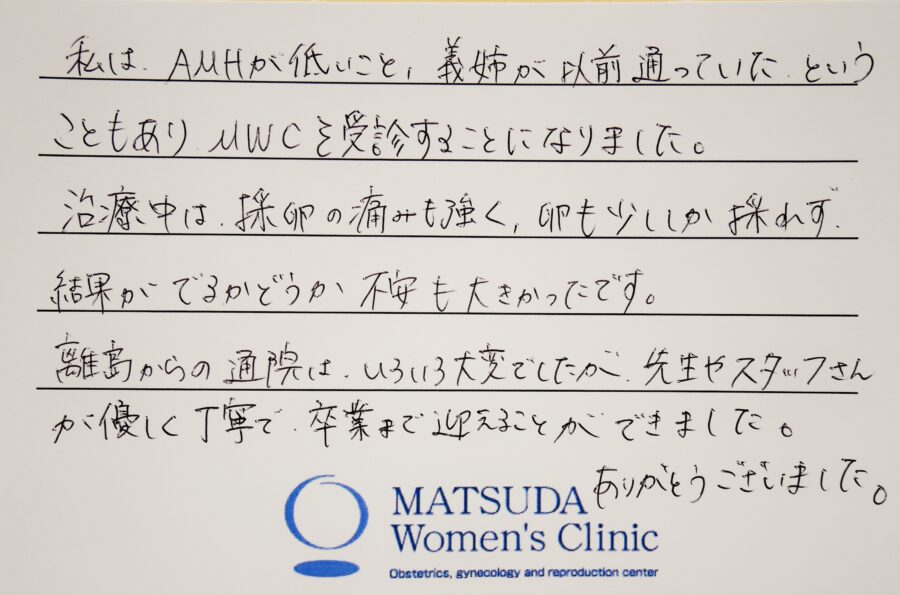 私は、AMHが低いこと、義姉が以前通っていた、という
こともあり、MWCを受診することになりました。
治療中は、採卵の痛みも強く、卵も少ししか採れず、
結果がでるかどうか不安も大きかったです。
離島からの通院は、いろいろ大変でしたが、先生やスタッフさん
が優しく丁寧で、卒業まで迎えることができました。
ありがとうございました。
MATSUDA
Women's Clinic
Obstetrics, gynecology and reproduction center